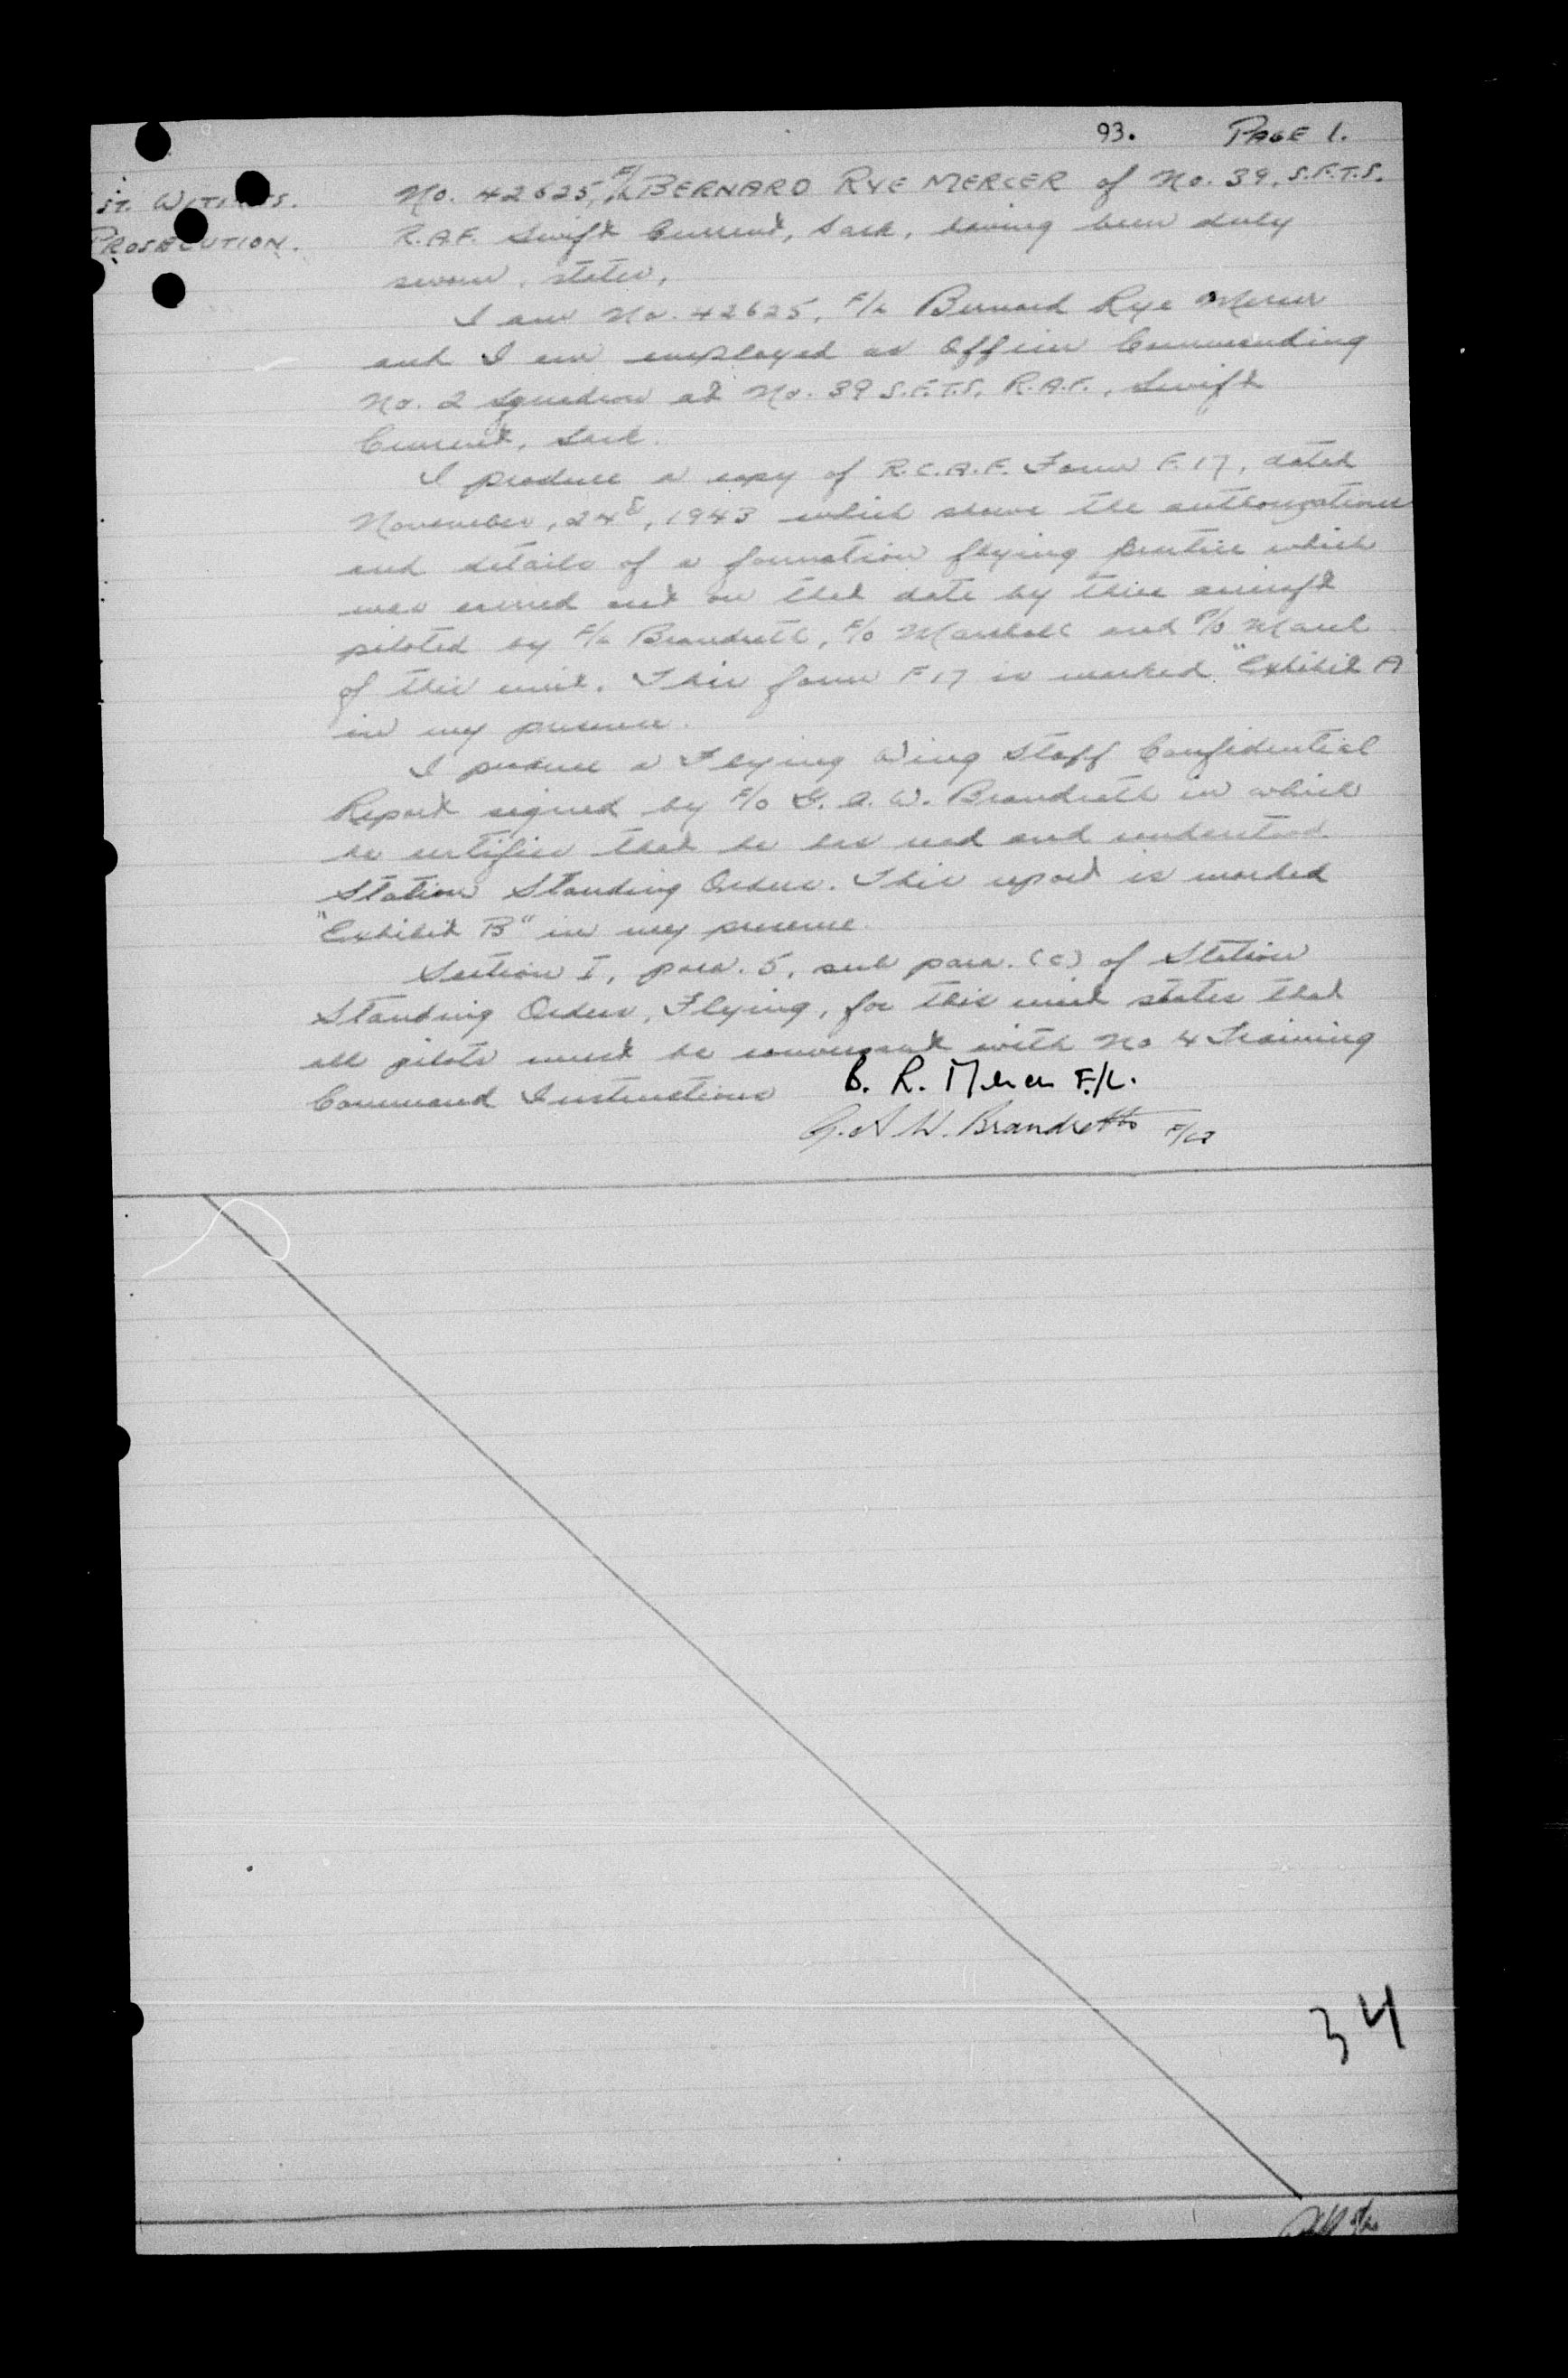 93. PAGE 1.
ST. WITNESS.
PROSECUTION.
No. 42625, F/L BERNARD RYE MERCER of No. 39, S.F.T.S.
R.A.F. Swift Current, Sask, having been duly
sworn, states,
I am No. 42625, F/L Bernard Rye Mercer
and I am employed as Officer Commanding
No. 2 Squadron at No. 39 S.F.T.S. R.A.F., Swift
Current, Sask.
I produce a copy of R.C.A.F. Form F.17, dated
November, 24th, 1943 which shows the authorizations
and details of a formation flying practice which
was carried out on that date by three aircraft
piloted by F/L Brandreth, F/O Marshall and P/O
of this unit. This form F17 is marked "Exhibit A
in my presence.
I produce a Flying Wing Staff Confidential
Report signed by F/O G. A. W. Brandreth in which
he certifies that he has read and understood
Station Standing Orders. This report is marked
"Exhibit B" in my presence.
Section I, para. 5, sub para. (c) of Station
Standing Orders, Flying, for this unit states that
all pilots must be conversant with No 4 Training
Command Instructions
B. R. Mercer F/L.
G. A W. Brandreth F/Lt
34